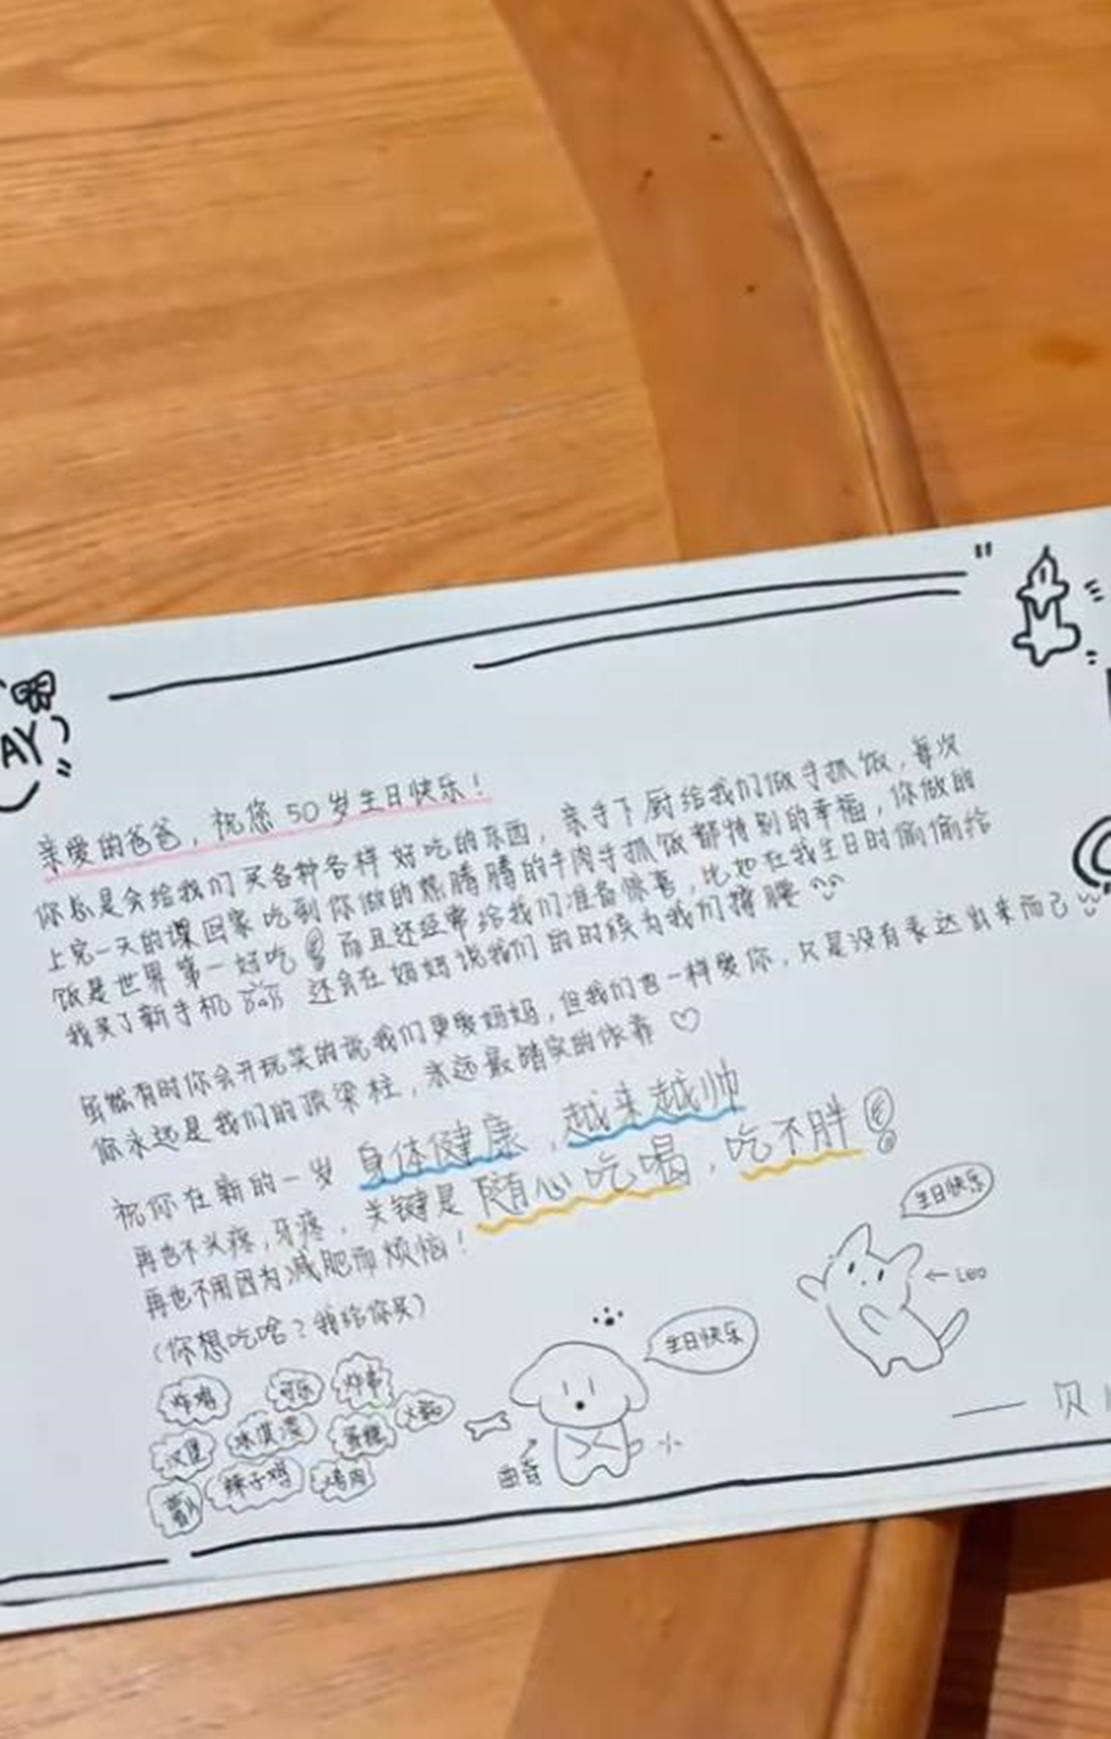 AY
亲爱的爸爸，祝您50岁生日快乐！
你总是会给我们买各种各样好吃的东西，亲手下厨给我们做手抓饭，每次
上完一天的课回家吃到你做的热腾腾的牛肉手抓饭都特别的幸福，你做的
饭是世界第一好吃 而且还经常给我们准备惊喜，比如在我生日时偷偷给
我买了新手机 还会在妈妈说我们的时候为我们撑腰
虽然有时你会开玩笑的说我们更爱妈妈，但我们也一样爱你，只是没有表达出来而已
你永远是我们的顶梁柱，永远最踏实的依靠♡
祝你在新的一岁 身体健康，越来越帅
再也不头疼，牙疼，关键是 随心吃喝，吃不胖
再也不用因为减肥而烦恼！
（你想吃啥？我给你买）
生日快乐
← Leo
生日快乐
炸鸡 可乐 炸串
汉堡 冰淇淋 蛋糕 火锅
辣子鸡 烤肉
曲奇
—— 贝